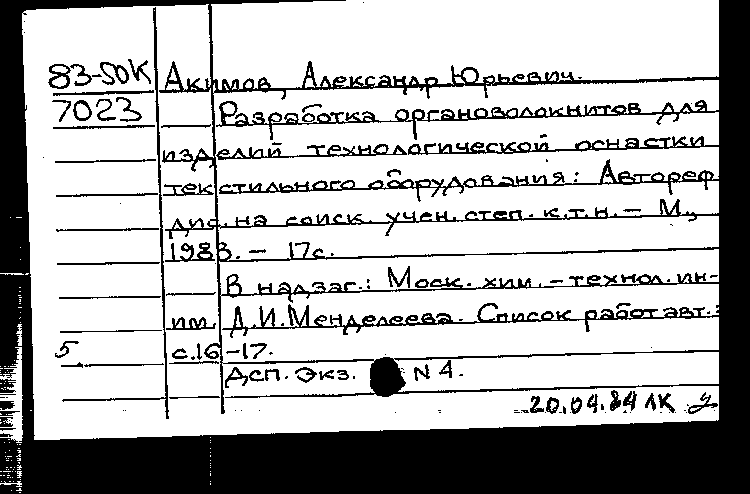 83-50К Акимов, Александр Юрьевич.
7023 Разработка органоволокнитов для
изделий технологической оснастки
текстильного оборудования: Автореф
дис. на соиск. учен. степ. к.т.н. – М.,
1983. – 17с.
В надзаг.: Моск. хим.-технол. ин-
им. Д.И.Менделеева. Список работ авт.:
5. с.16-17.
Дсп. Экз. N 4.
20.04.84 ЛК